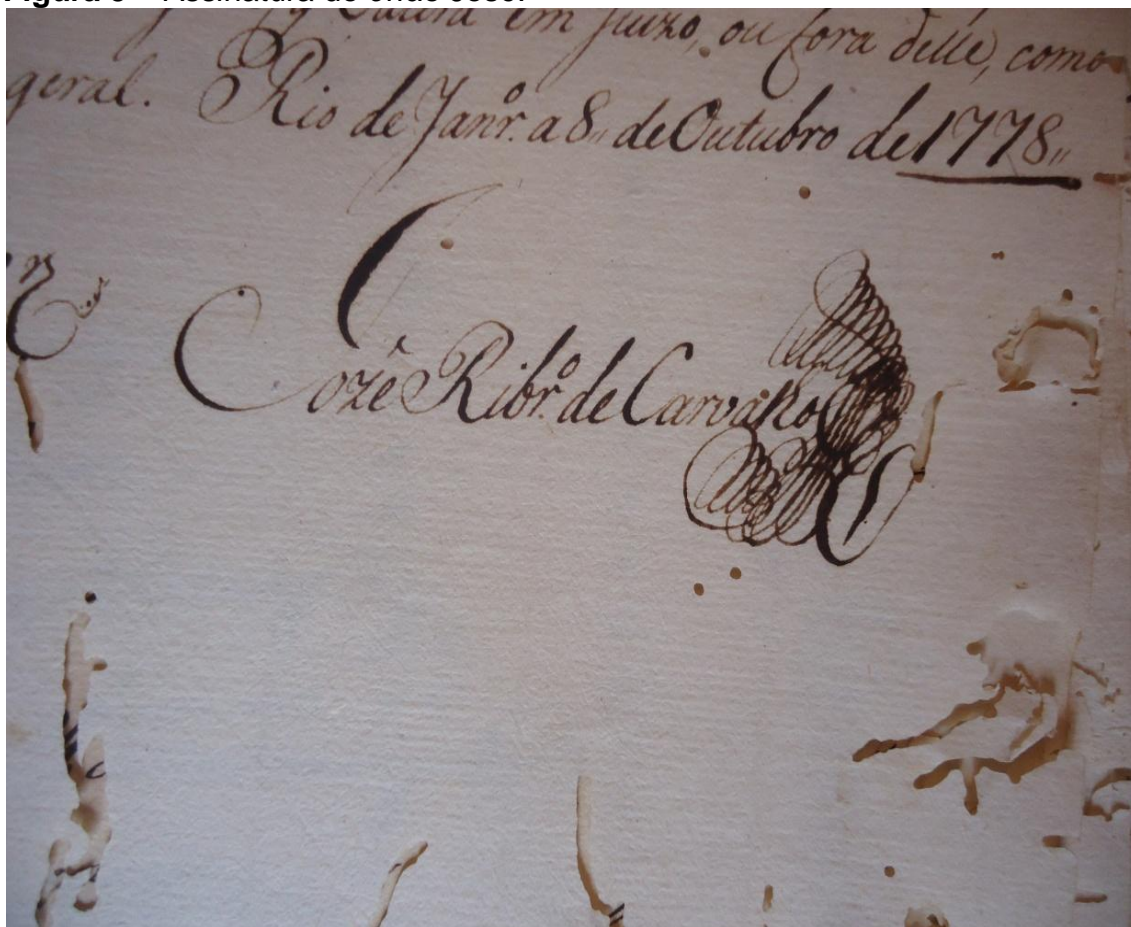 em juizo, ou fora delle, como
geral. Rio de Janr.º a 8,, de Outubro de 1778,,
Jozé Ribr.º de Carvalho